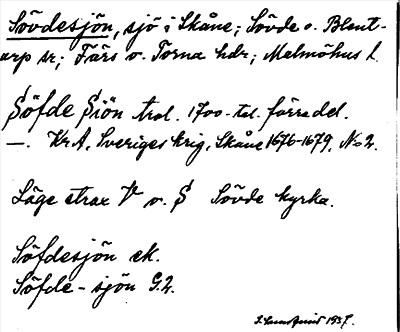 Sövdesjön, sjö i Skåne; Sövde o. Blent-
arp sr; Färs o. Torna hdr; Malmöhus l.
Söfde Siön trol. 1700-tal. förra del.
—. Kr A, Sveriges krig, Skåne 1676-1679, No 2.
Läge strax V o. S Sövde kyrka.
Söfdesjön ek.
Söfde-sjön G.2.
1937.